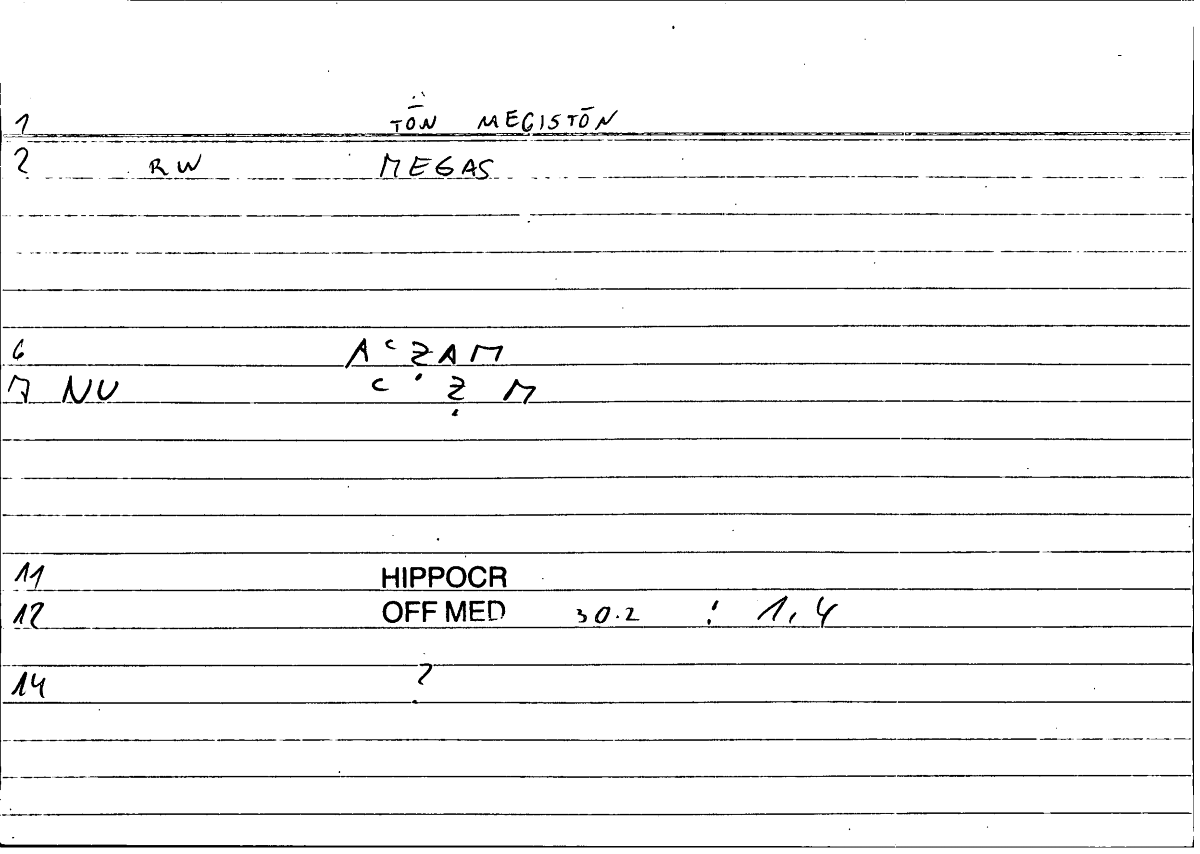 1 TŌN MEGISTŌN
2 RW MEGAS
6 AᶜẒAM
7 NU ᶜ Ẓ M
11 HIPPOCR
12 OFF MED 30.2 : 1,4
14 ?